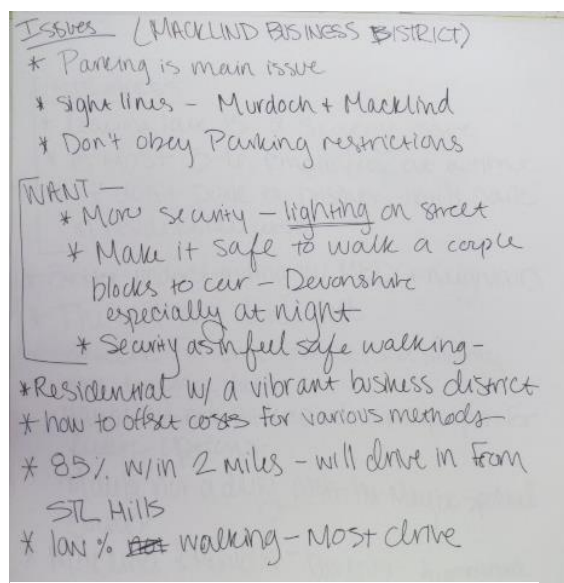 Issues (MACKLIND BUSINESS DISTRICT)
* Parking is main issue
* sight lines - Murdoch + Macklind
* Don't obey Parking restrictions
WANT -
* More security - lighting on street
* Make it safe to walk a couple
blocks to car - Devonshire
especially at night
* Security as in feel safe walking -
* Residential w/ a vibrant business district
* how to offset costs for various methods
* 85% w/in 2 miles - will drive in from
STL Hills
* low % walking - Most drive